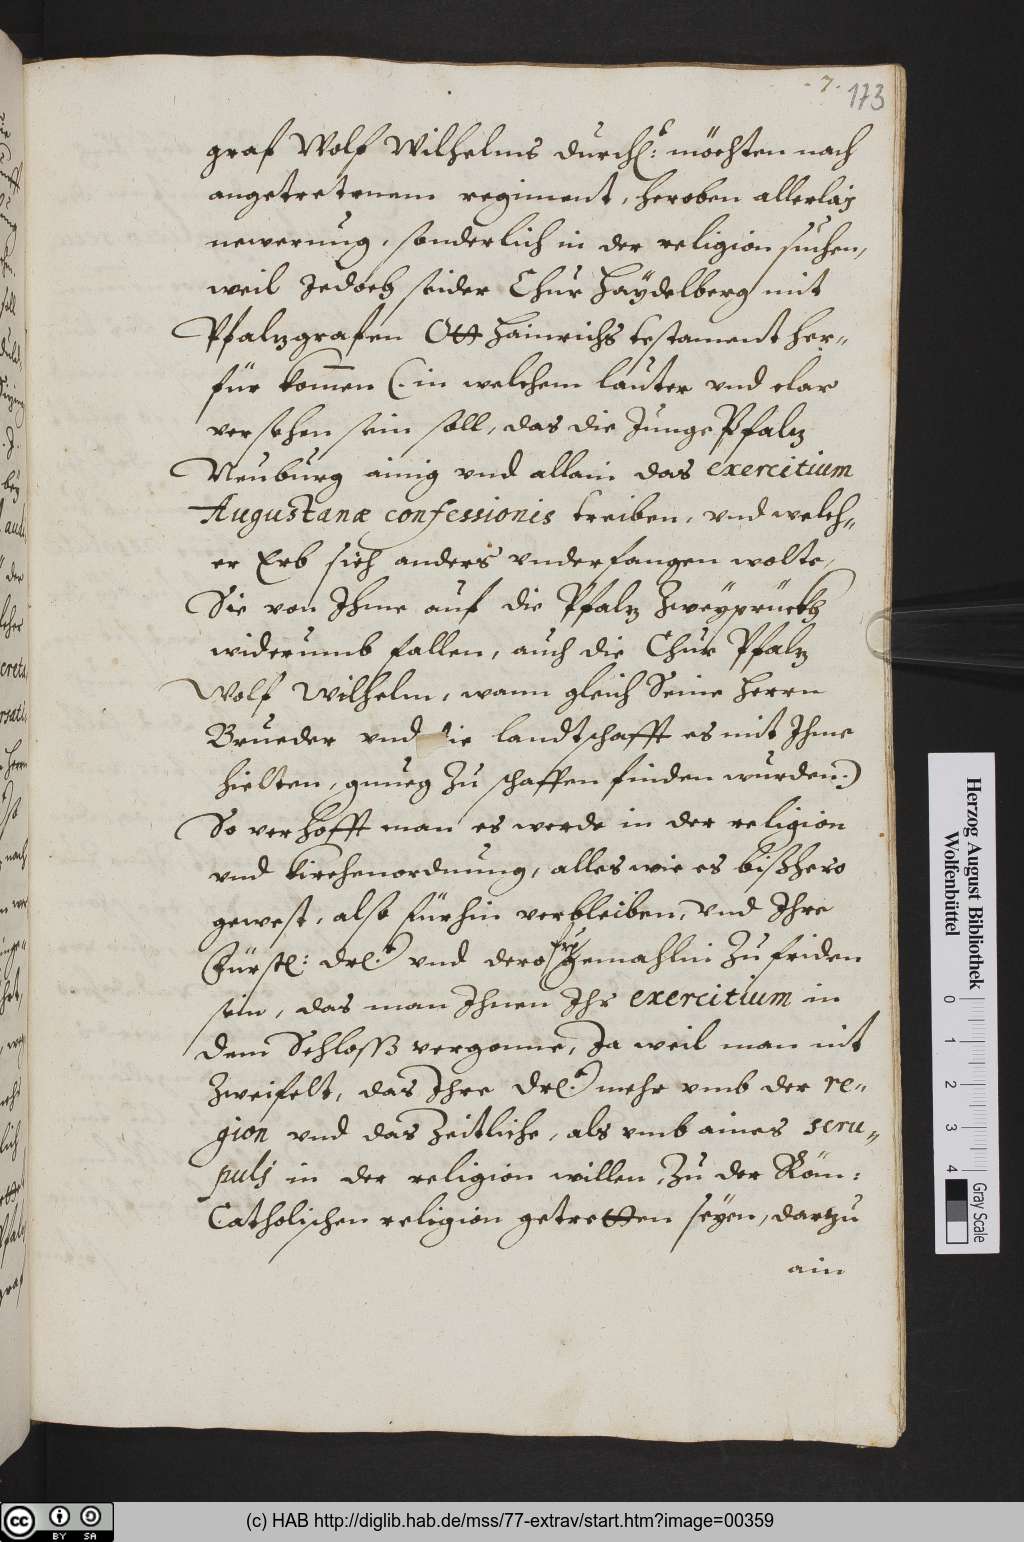 - 7 -
173
graf Wolf Wilhelms durchl: möchten nach
angetretenem regiment, heroben allerlaj
newerung, sonderlich in der religion suchen,
weil Jedoch seider Chur Haÿdelberg mit
Pfalzgrafen Ott Hainrichs testament her-
für kommen (. in welchem lauter vnd clar
versehen sein soll, das die Junge Pfalz
Neuburg ainig vnd allain das exercitium
Augustanæ confessionis treiben, vnd welch-
er Erb sich anders vnderfangen wolte,
Sie von Ihme auf die Pfalz Zweÿprückh
widerumb fallen, auch die Chur Pfalz
Wolf Wilhelm, wann gleich Seine Herrn
Brueder vnd die landtschafft es mit Ihme
hielten, gnueg zu schaffen finden wurden.)
So verhofft man es werde in der religion
vnd kirchenordnung, alles wie es bißhero
gewest, also fürhin verbleiben, vnd Ihre
Fürstl: drl. vnd dero frl gemahlin zu friden
sein, das man Ihnen Ihr exercitium in
dem Schloss vergonne, Ja weil man nit
Zweifelt, das Ihre drl. mehr vmb der re-
gion vnd das Zeitliche, als vmb aines scru-
pulj in der religion willen, zu der Röm:
Catholischen religion getretten seyen, darzu
ain
Herzog August Bibliothek
Wolfenbüttel
0 1 2 3 4
Gray Scale
cc BY SA
(c) HAB http://diglib.hab.de/mss/77-extrav/start.htm?image=00359